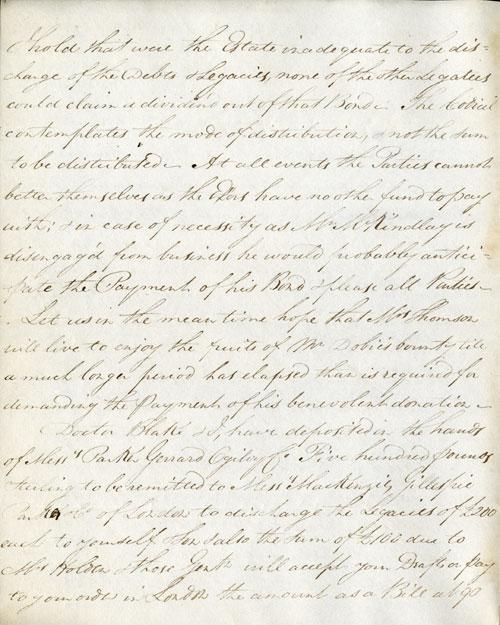 & hold that were the Estate inadequate to the dis=
charge of the Debts & Legacies, none of the other legatees
could claim a dividend out of that Bond. The
contemplates the mode of distribution, & not the sum
to be distributed. At all events the Parties cannot
better themselves as the Exors have no other fund to pay
with; & in case of necessity as Mr McKindlay is
disengag'd from business he would probably antici=
pate the Payment of his Bond & please all Parties.
Let us in the mean time hope that Mrs Thomson
will live to enjoy the fruits of Mr Dobie's bounty till
a much longer period has elapsed than is required for
demanding the Payment of his benevolent donation.
Doctor Blake & I, have deposited in the hands
of Messrs Parker Gerrard Ogilvy & Co Five hundred pounds
Sterling to be remitted to Messrs MacKenzie, Gillespie
Parker & Co of London to discharge the Legacies of £200
each to yourself & & also the sum of £100 due to
Mrs Holden & those Gentn will accept your Draft or pay
to your order in London the amount as a Bill at 90